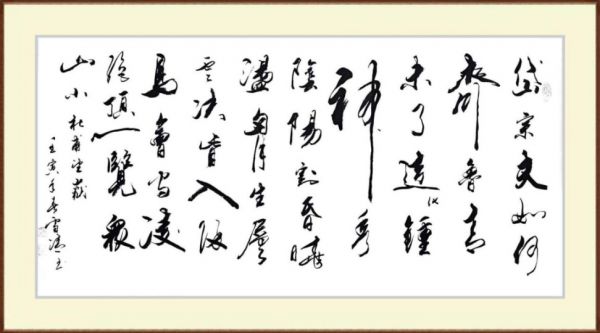 岱宗夫如何
齊魯青
未了造化鍾
神秀
陰陽割昏曉
盪胸生層
雲決眥入歸
鳥會當凌
絕頂一覽衆
山小 杜甫望嶽
壬寅年春